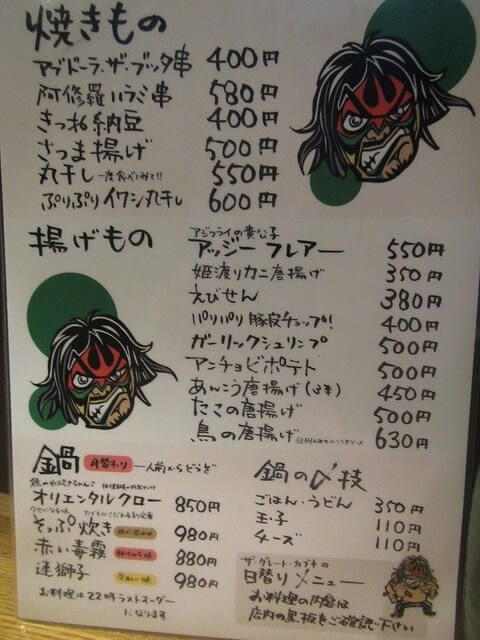 焼きもの
アブドーラ・ザ・ブッタ串 400円
阿修羅ハラミ串 580円
きつね納豆 400円
さつま揚げ 500円
丸干し 一度食べてみて!! 550円
ぷりぷりイワシ丸干し 600円
揚げもの
アジフライの貴公子
アッジーフレアー 550円
姫渡りカニ唐揚げ 350円
えびせん 380円
パリパリ豚皮チョップ! 400円
ガーリックシュリンプ 500円
アンチョビポテト 500円
あんこう唐揚げ 450円
たこの唐揚げ 500円
鳥の唐揚げ 630円
鍋 月替わり 一人前からどうぞ
オリエンタルクロー 850円
そっぷ炊き 980円
赤い毒霧 880円
連獅子 980円
お料理は22時ラストオーダー
になります
鍋の〆技
ごはん・うどん 350円
玉子 110円
チーズ 110円
ザ・グレート・カブキの
日替りメニュー
お料理の内容は
店内の黒板をご確認下さい